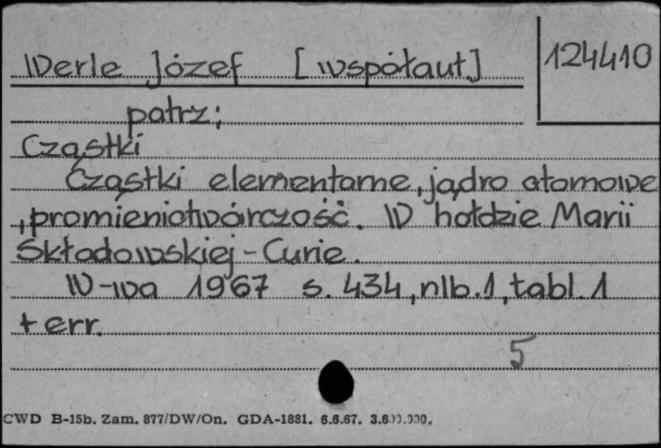 Werle Józef [współaut.] 124410
patrz:
Cząstki
Cząstki elementarne, jądro atomowe
, promieniotwórczość. W hołdzie Marii
Skłodowskiej-Curie.
W-wa 1967 s. 434, nlb. 1, tabl. 1
+ err.
5
CWD B-15b. Zam. 877/DW/On. GDA-1881. 6.6.67.